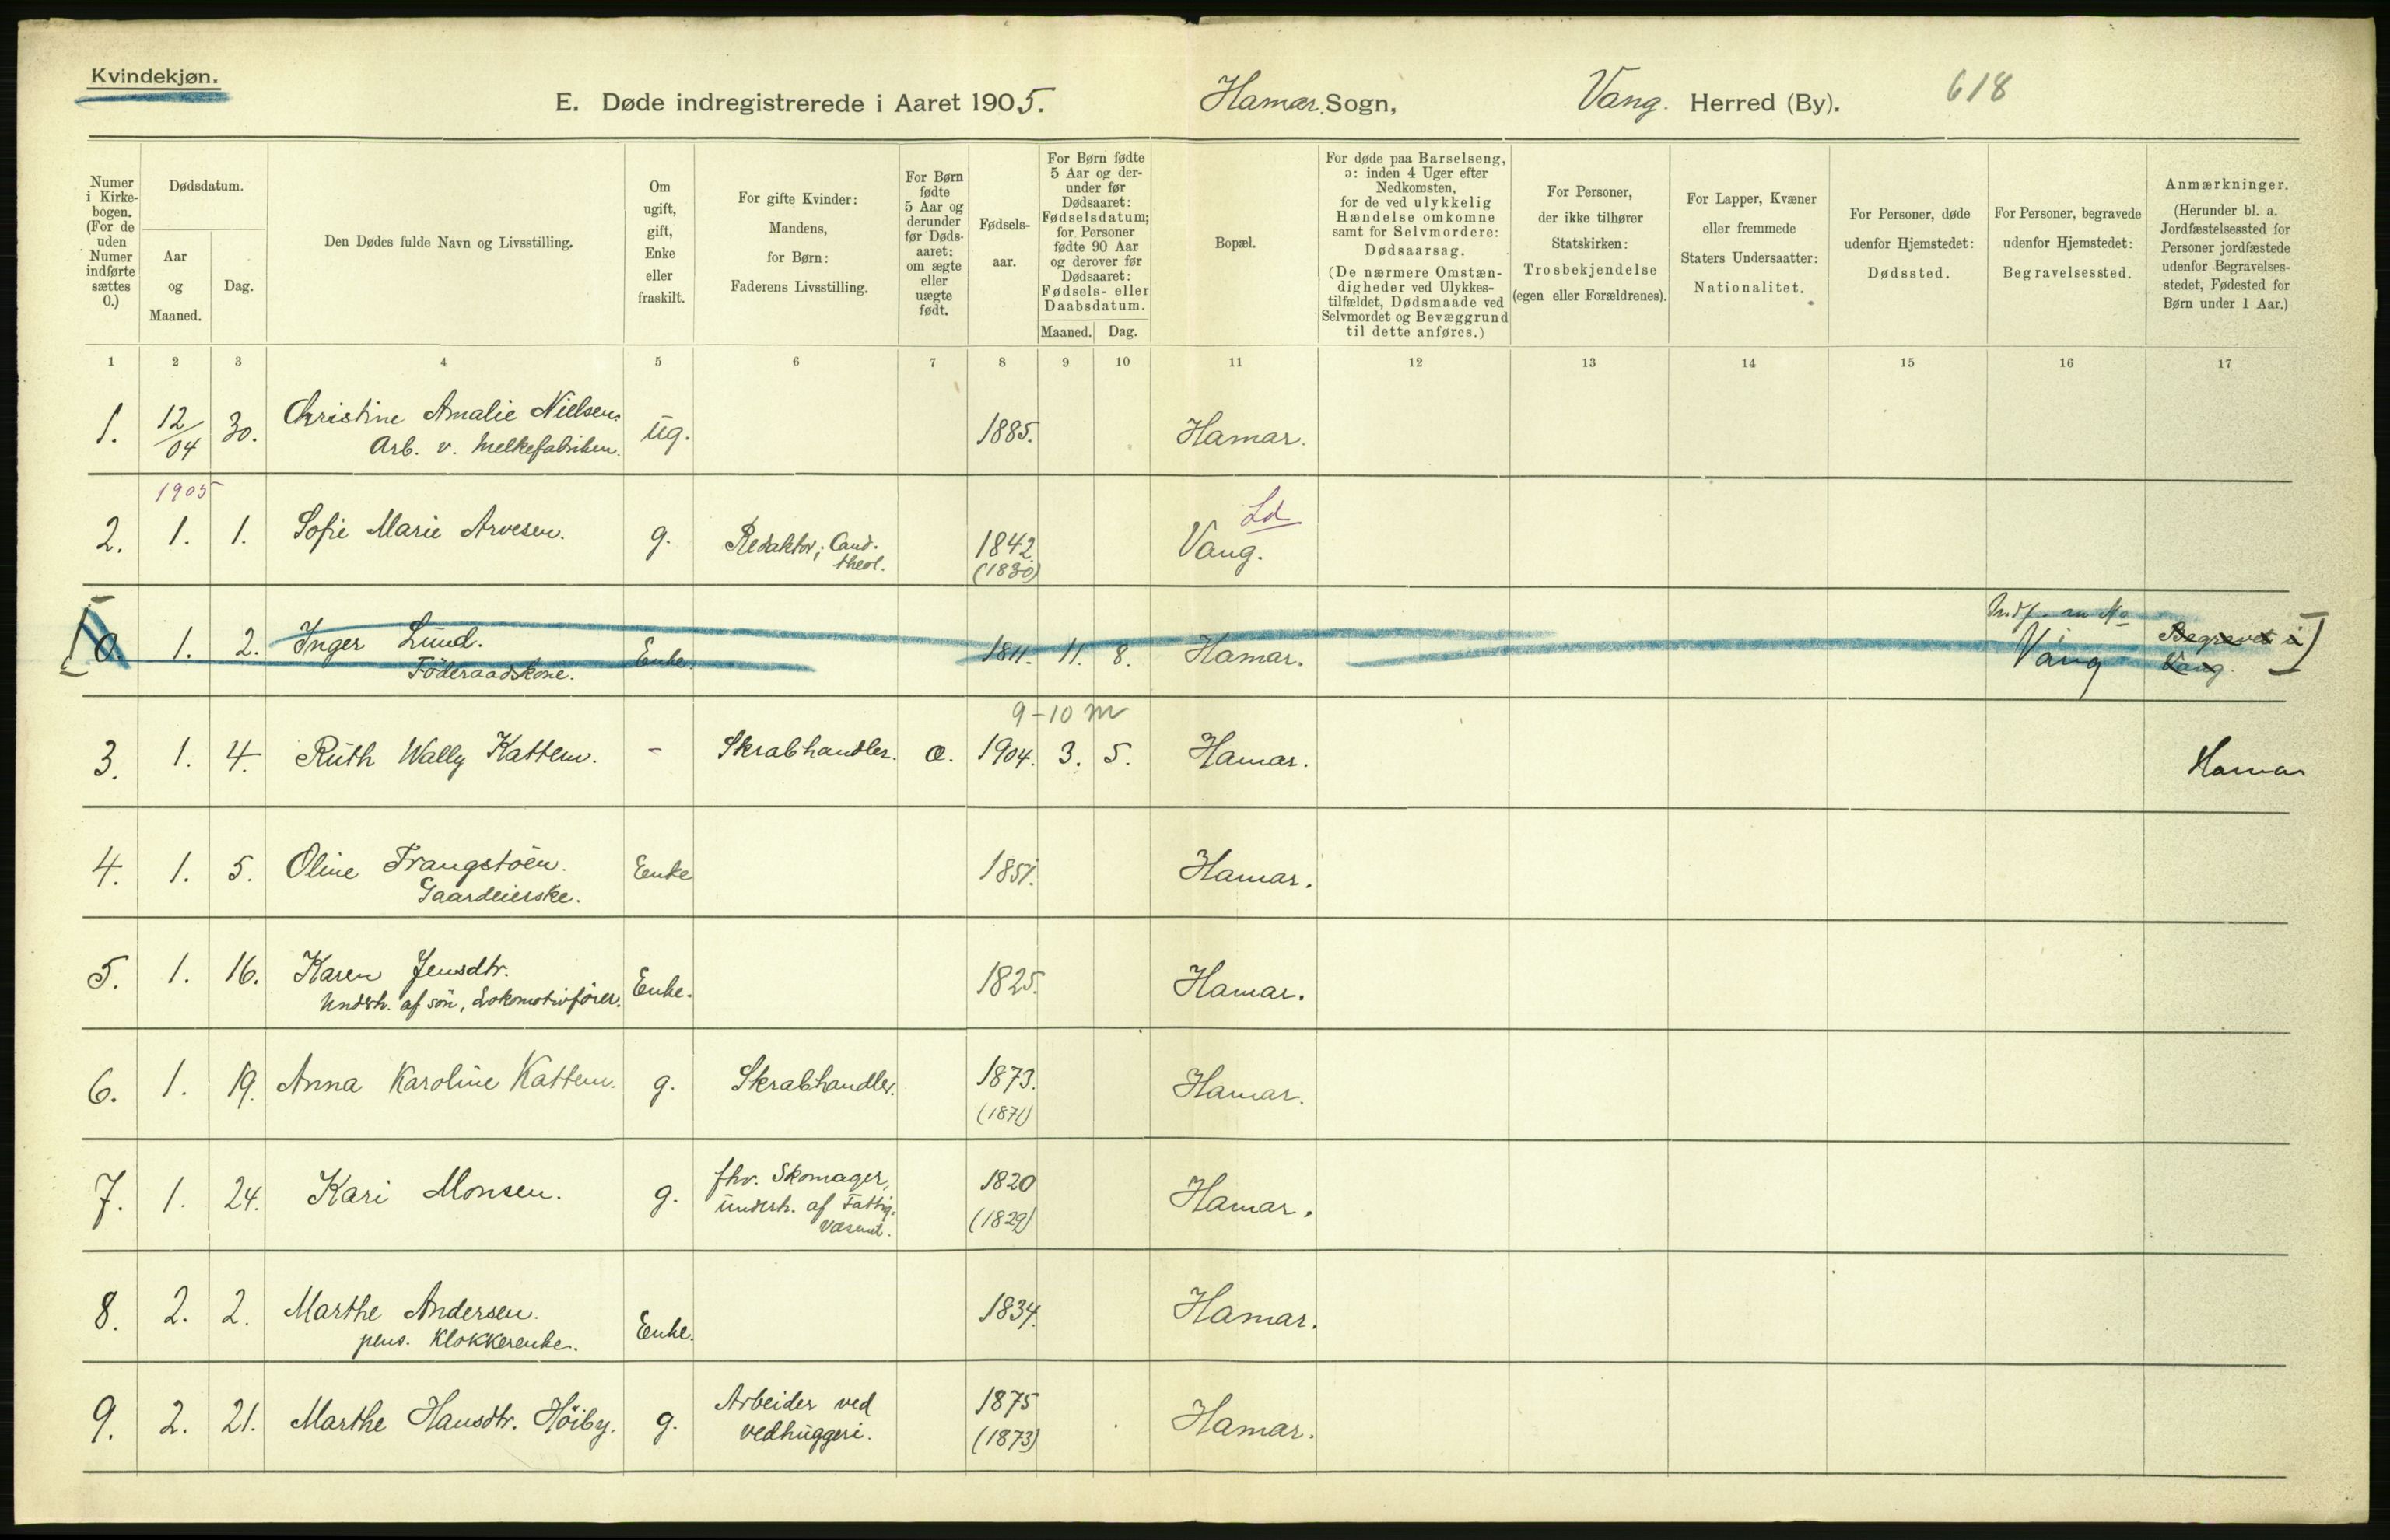 Kvindekjøn.
E. Døde indregistrerede i Aaret 1905. Hamar Sogn, Vang. Herred (By). 618
Numer i Kirkebogen. (For de uden Numer indførte sættes 0.)
Dødsdatum.
Aar og Maaned.
Dag.
Den Dødes fulde Navn og Livsstilling.
Om ugift, gift, Enke eller fraskilt.
For gifte Kvinder: Mandens, for Børn: Faderens Livsstilling.
For Børn fødte 5 Aar og derunder før Dødsaaret: om ægte eller uægte født.
Fødselsaar.
For Børn fødte 5 Aar og derunder før Dødsaaret: Fødselsdatum; for Personer fødte 90 Aar og derover før Dødsaaret: Fødsels- eller Daabsdatum.
Maaned. Dag.
Bopæl.
For døde paa Barselseng, ɔ: inden 4 Uger efter Nedkomsten, for de ved ulykkelig Hændelse omkomne samt for Selvmordere: Dødsaarsag. (De nærmere Omstændigheder ved Ulykkestilfældet, Dødsmaade ved Selvmordet og Bevæggrund til dette anføres.)
For Personer, der ikke tilhører Statskirken: Trosbekjendelse (egen eller Forældrenes).
For Lapper, Kvæner eller fremmede Staters Undersaatter: Nationalitet.
For Personer, døde udenfor Hjemstedet: Dødssted.
For Personer, begravede udenfor Hjemstedet: Begravelsessted.
Anmærkninger. (Herunder bl. a. Jordfæstelsessted for Personer jordfæstede udenfor Begravelsesstedet, Fødested for Børn under 1 Aar.)
1 2 3 4 5 6 7 8 9 10 11 12 13 14 15 16 17
1. 12/04 30. Christine Amalie Nielsen. ug. 1885. Hamar.
Arb. v. Melkefabriken.
1905 Ld
2. 1. 1. Sofie Marie Arvesen. g. Redaktør; Cand. theol. 1842 Vang.
(1830)
[0. 1. 2. Inger Lund. Enke. 1811. 11. 8. Hamar. Vang Begravet i Vang.]
Föderaadskone.
9-10 m
3. 1. 4. Ruth Wally Kattem. - Skrabhandler. æ. 1904. 3. 5. Hamar. Hamar
4. 1. 5. Oline Frangstöen. Enke 1851. Hamar.
Gaardeierske.
5. 1. 16. Karen Jensdtr. Enke. 1825. Hamar.
Underh. af sön, Lokomotivförer.
6. 1. 19. Anna Karoline Kattem. g. Skrabhandler. 1873. Hamar.
(1871)
7. 1. 24. Kari Monsen. g. fhv. Skomager, 1820 Hamar.
underh. af Fattig- (1829)
væsenet.
8. 2. 2. Marthe Andersen. Enke. 1834. Hamar.
pens. Klokkerenke.
9. 2. 21. Marthe Hansdtr. Höiby. g. Arbeider ved 1875 Hamar.
vedhuggeri. (1873)